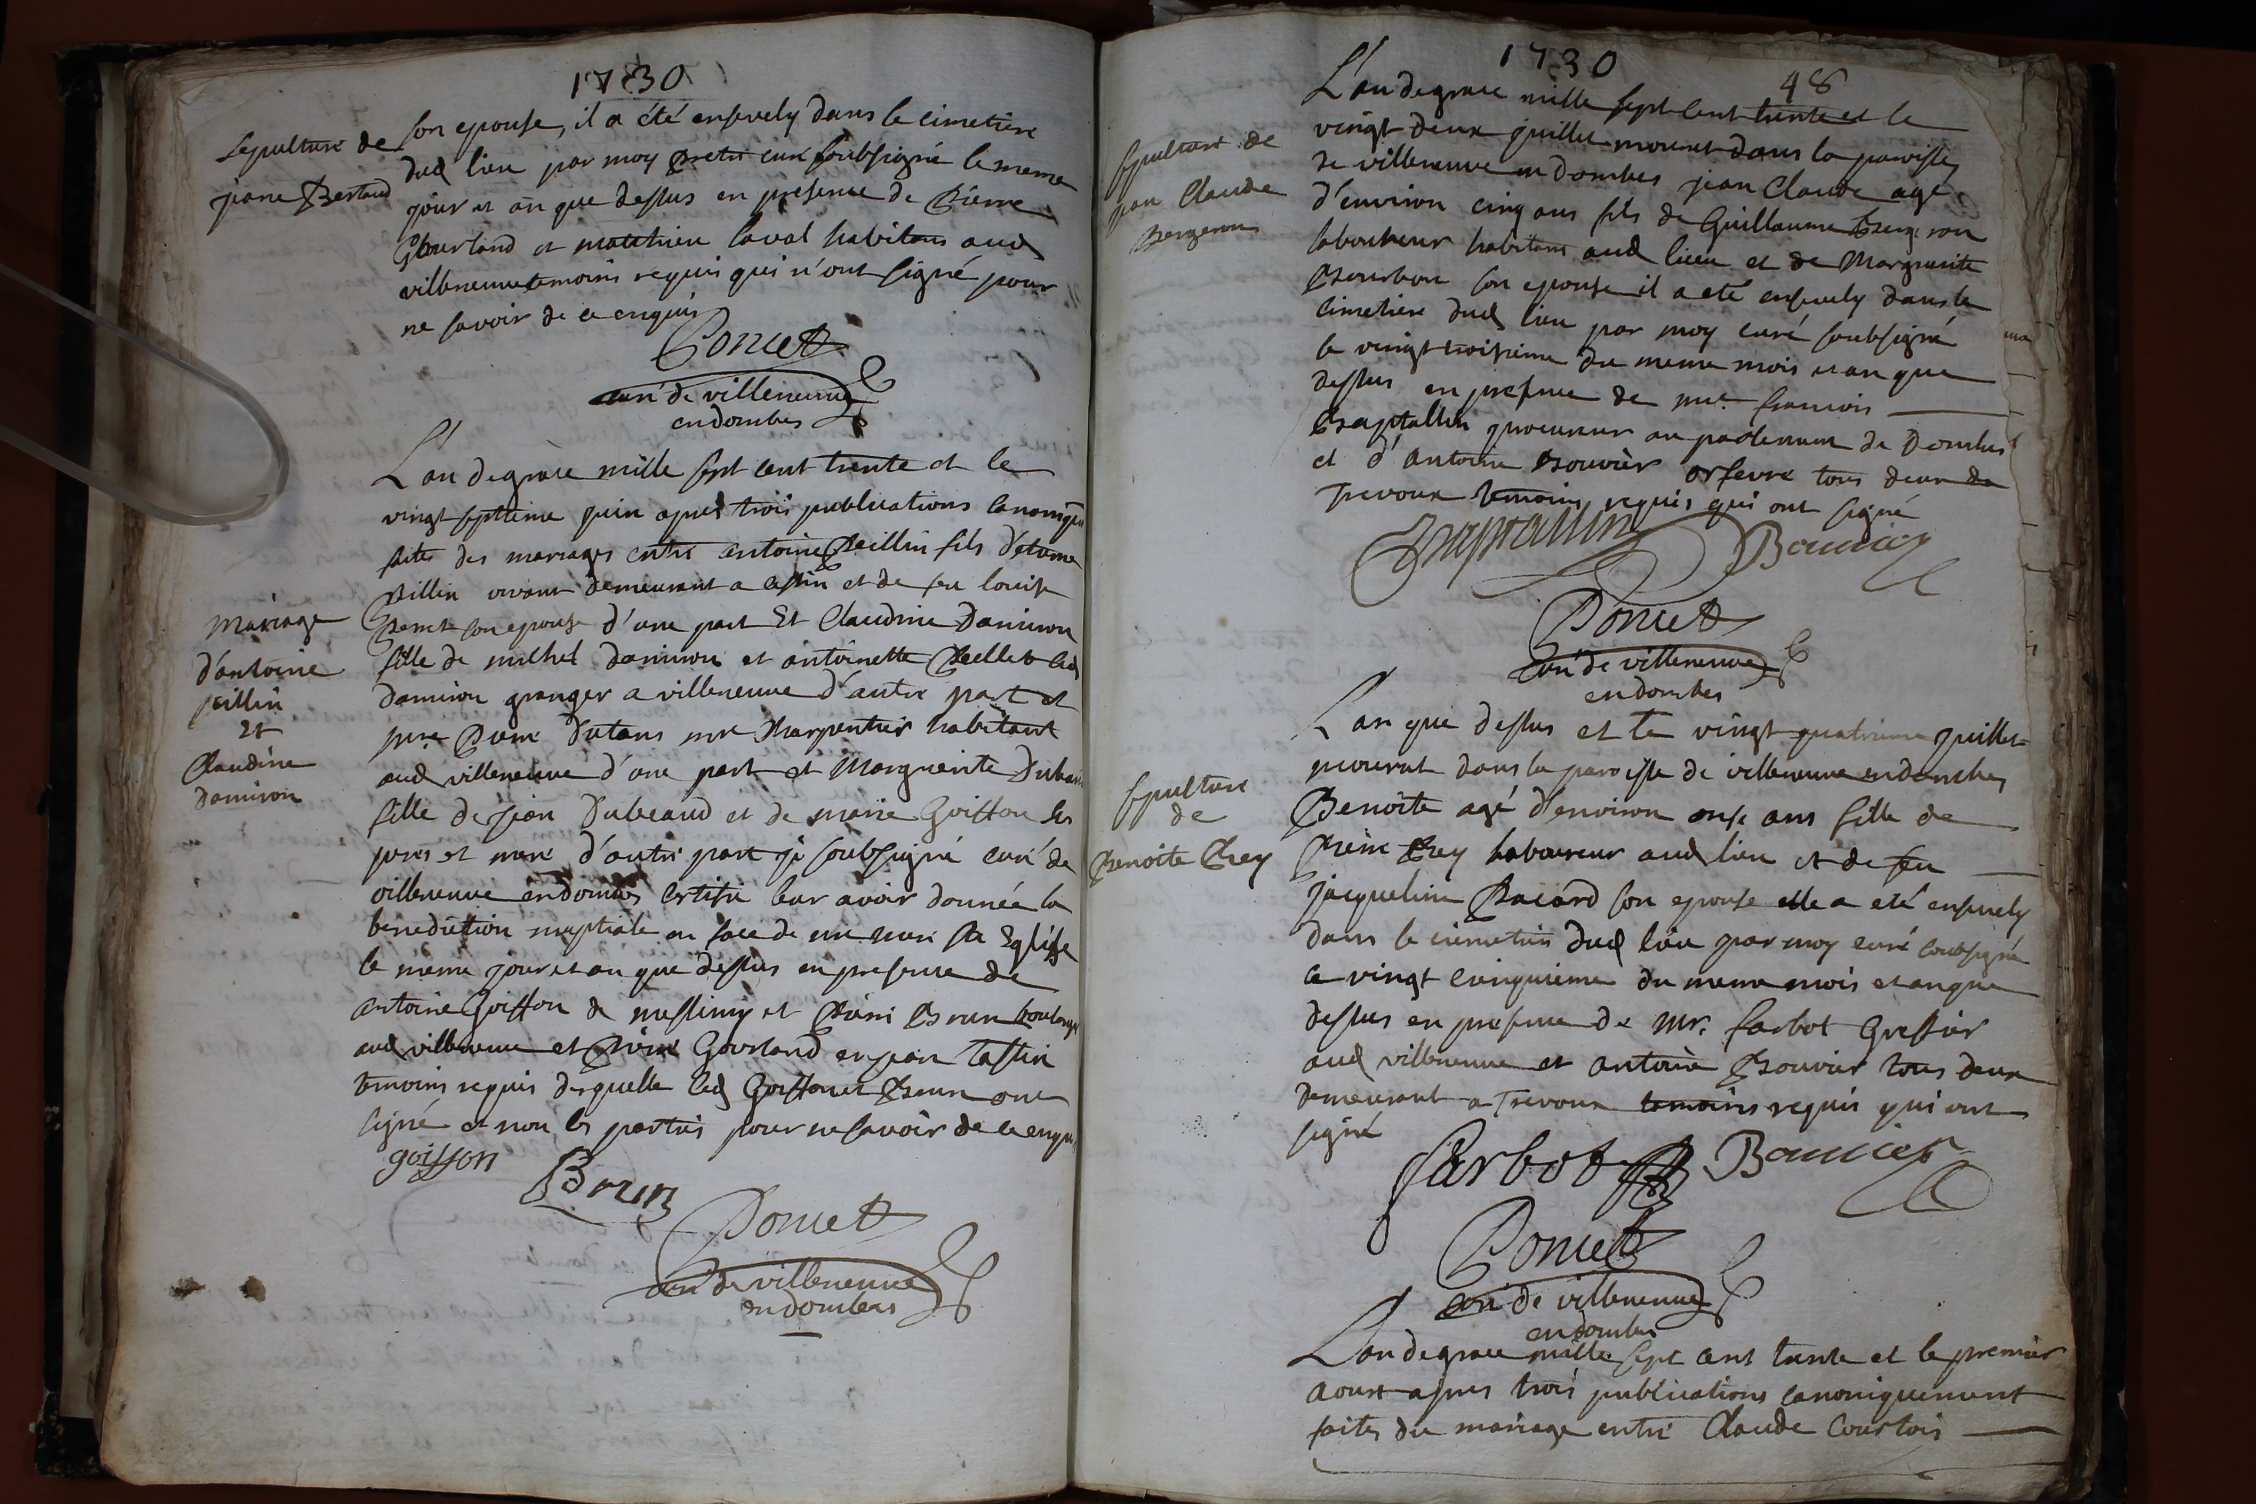 1730
Sepulture de
jeane Bertaud
son epouse, il a été ensevely dans le cimetiere
dud lieu par moy pretre curé soubsigné le meme
jour et an que dessus en presence de Pierre
Gourland et matthieu laval habitans aud
villeneuve temoins requis qui n'ont signé pour
ne savoir de ce enquis
Poncet
curé de villeneuve
en dombes
L'an de grace mille sept cent trente et le
vingt septieme juin apres trois publications
faites des mariages entre antoine Peillin fils d'etienne
Pillin vivant demeurant a et de feu louise
son epouse d'une part Et Claudine Damiron
fille de michel damiron et antoinette led
damiron granger a villeneuve d'autre part et
Pierre dutans me Charpentier habitant
aud villeneuve d'une part et Marguerite
fille de jean Dubeaud et de marie Goiffon ses
peres et mere d'autre part je soubsigné curé de
villeneuve en dombes certifie leur avoir donnée la
benediction nuptiale en face de nre mere ste Eglise
le meme jour et an que dessus en presence de
antoine Goiffon de et Pierre Brun
aud villeneuve et Pierre Gourland et jean Tassin
temoins requis desquelle led Goiffon et Brun ont
signé et non les parties pour ne savoir de ce enquis
mariage
d'antoine
peillin
Et
Claudine
damiron
goiffon
Brun
Poncet
curé de villeneuve
en dombes
1730
48
Sepulture de
jean Claude
Bergeron
L'an de grace mille sept cent trente et le
vingt deux juillet mourut dans la paroisse
de villeneuve en dombes jean Claude agé
d'environ cinq ans fils de Guillaume Bergeron
laboureur habitant aud lieu et de Marguerite
Bourbon son epouse il a eté ensevely dans le
cimetiere dud lieu par moy curé soubsigné
le vingt troisieme du meme mois et an que
dessus en presence de me francois
Chapitallin procureur au parlement de Dombes
et d'antoine Bouvier orfevre tous deux de
Trevoux temoins requis qui ont signé
Bouvier
Poncet
curé de villeneuve
en dombes
Sepulture
de
Benoite Rey
L'an que dessus et le vingt quatrieme juillet
mourut dans la paroisse de villeneuve en dombes
Benoite agé d'environ onse ans fille de
Pierre Rey laboureur aud lieu et de feu
jacqueline Bacard son epouse elle a eté ensevely
dans le cimetiere dud lieu par moy curé soubsigné
ce vingt cinquieme du meme mois et an que
dessus en presence de Mr. farbot Greffier
aud villeneuve et antoine Bouvier tous deux
demeurant a Trevoux temoins requis qui ont
signé
farbot Bouvier
Poncet
curé de villeneuve
en dombes
L'an de grace mille sept cent trente et le premier
aoust apres trois publications canoniquement
faites du mariage entre Claude Courtois